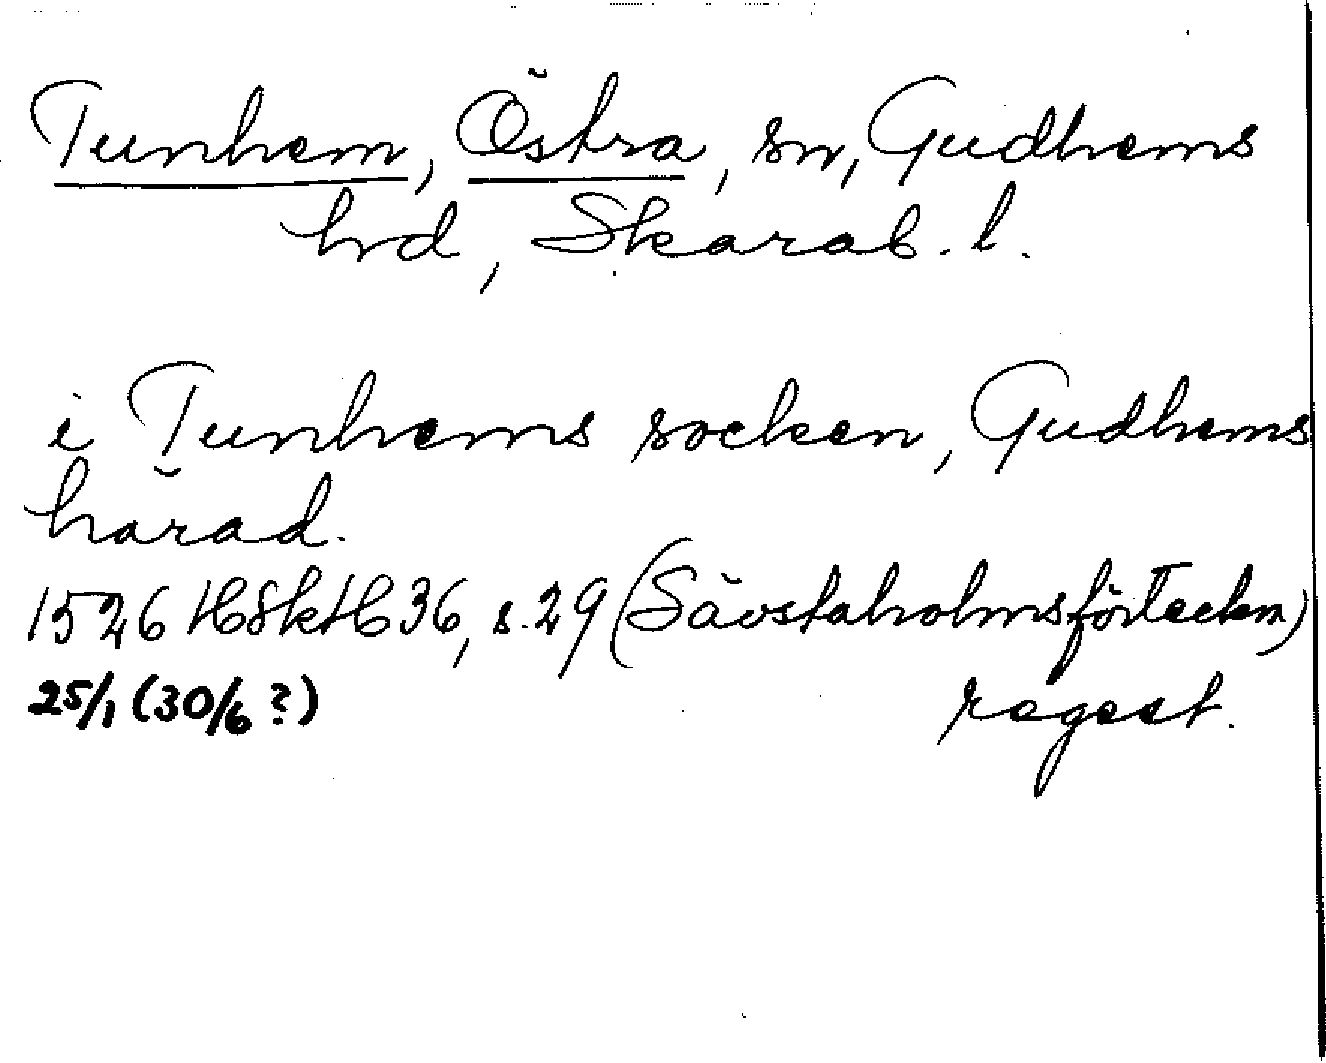 Tunhem, Östra, sn, Gudhems
hrd, Skarab. l.
i Tunhems socken, Gudhems
härad.
1526 HSkH 36, s. 29 (Sävstaholmsförteckn)
25/1 (30/6 ?) regest.